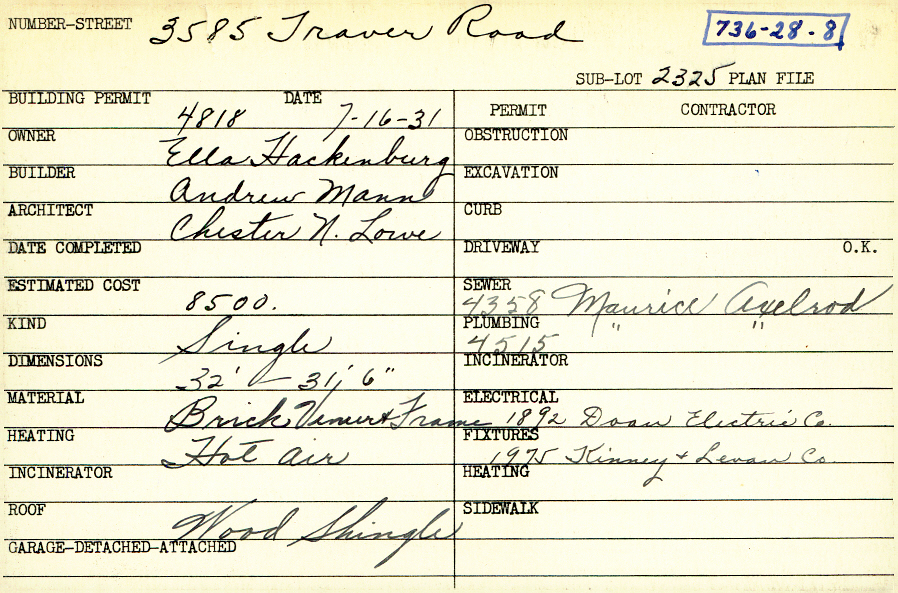 NUMBER-STREET 3585 Traver Road
736-28-8
SUB-LOT 2325 PLAN FILE
BUILDING PERMIT 4818 DATE 7-16-31
PERMIT CONTRACTOR
OWNER Ella Hackenburg
OBSTRUCTION
BUILDER Andrew Mann
EXCAVATION
ARCHITECT Chester N. Lowe
CURB
DATE COMPLETED
DRIVEWAY O.K.
ESTIMATED COST 8500.
SEWER 4358 Maurice Axelrod
KIND Single
PLUMBING 4515 " "
DIMENSIONS 32' — 31' 6"
INCINERATOR
MATERIAL Brick Veneer & Frame
ELECTRICAL 1892 Doan Electric Co.
HEATING Hot air
FIXTURES 1975 Kinney + Levan Co.
INCINERATOR
HEATING
ROOF Wood Shingle
SIDEWALK
GARAGE-DETACHED-ATTACHED